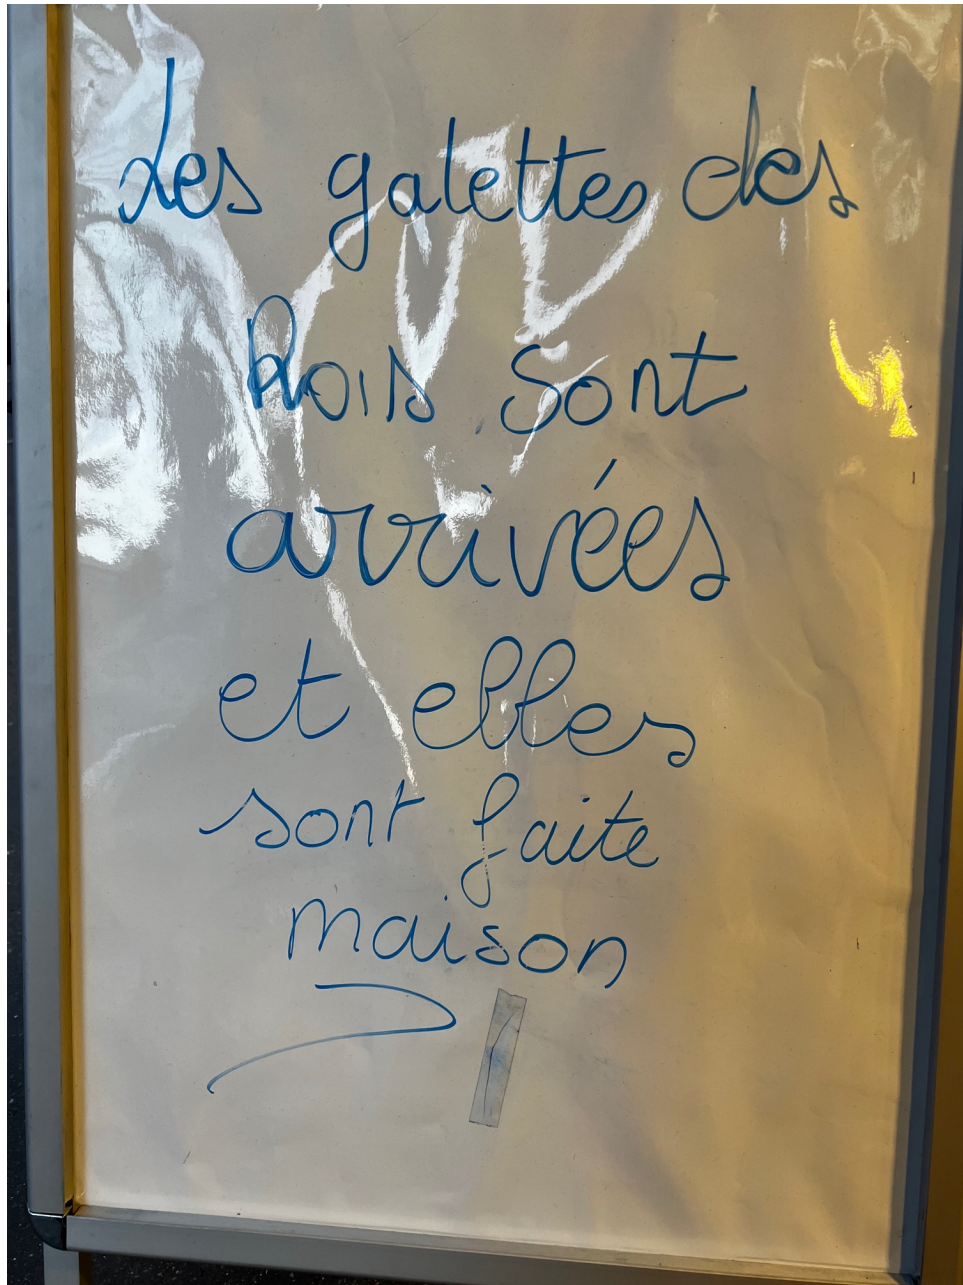 Les galettes des
Rois sont
arrivées
et elles
sont faite
maison